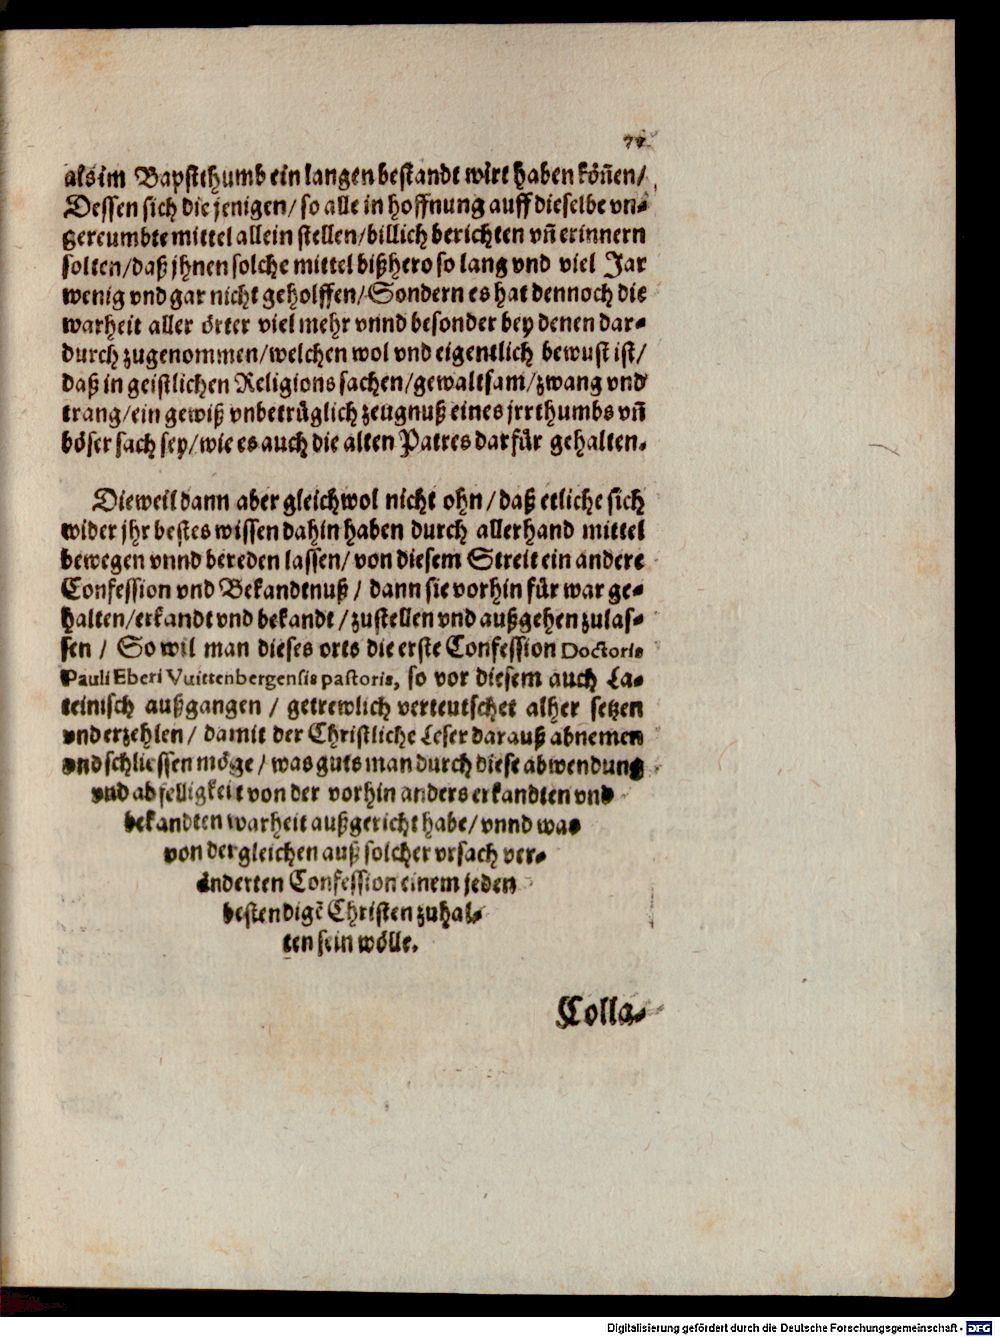 als im Bapstthumb ein langen bestandt wirt haben köñen/
Dessen sich die jenigen/ so alle in hoffnung auff dieselbe vn-
gereumbte mittel allein stellen/ billich berichten vñ erinnern
solten/ daß jhnen solche mittel bißhero so lang vnd viel Jar
wenig vnd gar nicht geholffen/ Sondern es hat dennoch die
warheit aller örter viel mehr vnnd besonder bey denen dar-
durch zugenommen/ welchen wol vnd eigentlich bewust ist/
daß in geistlichen Religions sachen/ gewaltsam/ zwang vnd
trang/ ein gewiß vnbetrüglich zeugnuß eines jrrthumbs vñ
böser sach sey/ wie es auch die alten Patres darfür gehalten.
Dieweil dann aber gleichwol nicht ohn/ daß etliche sich
wider jhr bestes wissen dahin haben durch allerhand mittel
bewegen vnnd bereden lassen/ von diesem Streit ein andere
Confession vnd Bekandtnuß/ dann sie vorhin für war ge-
halten/ erkandt vnd bekandt/ zustellen vnd außgehen zulas-
sen/ So wil man dieses orts die erste Confession Doctoris
Pauli Eberi Vuittenbergensis pastoris, so vor diesem auch La-
teinisch außgangen/ getrewlich verteutschet alher setzen
vnd erzehlen/ damit der Christliche Leser darauß abnemen
vnd schliessen möge/ was guts man durch diese abwendung
vnd abfelligkeit von der vorhin anders erkandten vnd
bekandten warheit außgericht habe/ vnnd was
von dergleichen auß solcher vrsach ver-
änderten Confession einem jeden
bestendigē Christen zuhal-
ten sein wölle.
Colla-
Digitalisierung gefördert durch die Deutsche Forschungsgemeinschaft - DFG